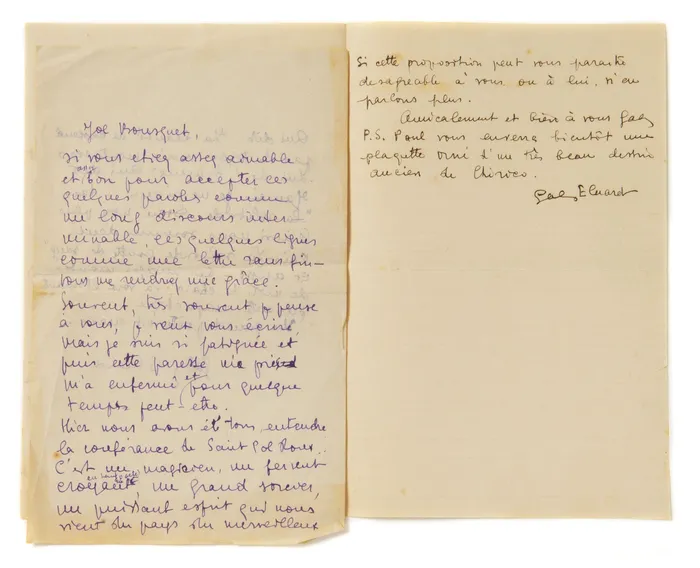 Joë Bousquet,
si vous etiez assez aimable
et bon pour accepter ces
quelques paroles comme
un long discours inter-
minable, ces quelques lignes
comme une lettre sans fin-
vous me rendrez une grâce.
Souvent, très souvent je pense
à vous, je veux vous écrire,
mais je suis si fatiguée et
puis cette paresse
m'a enfermé et pour quelque
temps peut-être.
Hier nous avons été tous entendre
la conférance de Saint Pol Roux.
C'est un magicien, un fervent
croyant, un grand sorcier,
un puissant esprit qui nous
vient du pays du merveilleux
Si cette proportion peut vous paraitre
desagreable à vous ou à lui, n'en
parlons plus.
Amicalement et bien à vous Gala
P.S. Paul vous enverra bientôt une
plaquette orné d'un très beau dessin
ancien de Chirico.
Gala Eluard